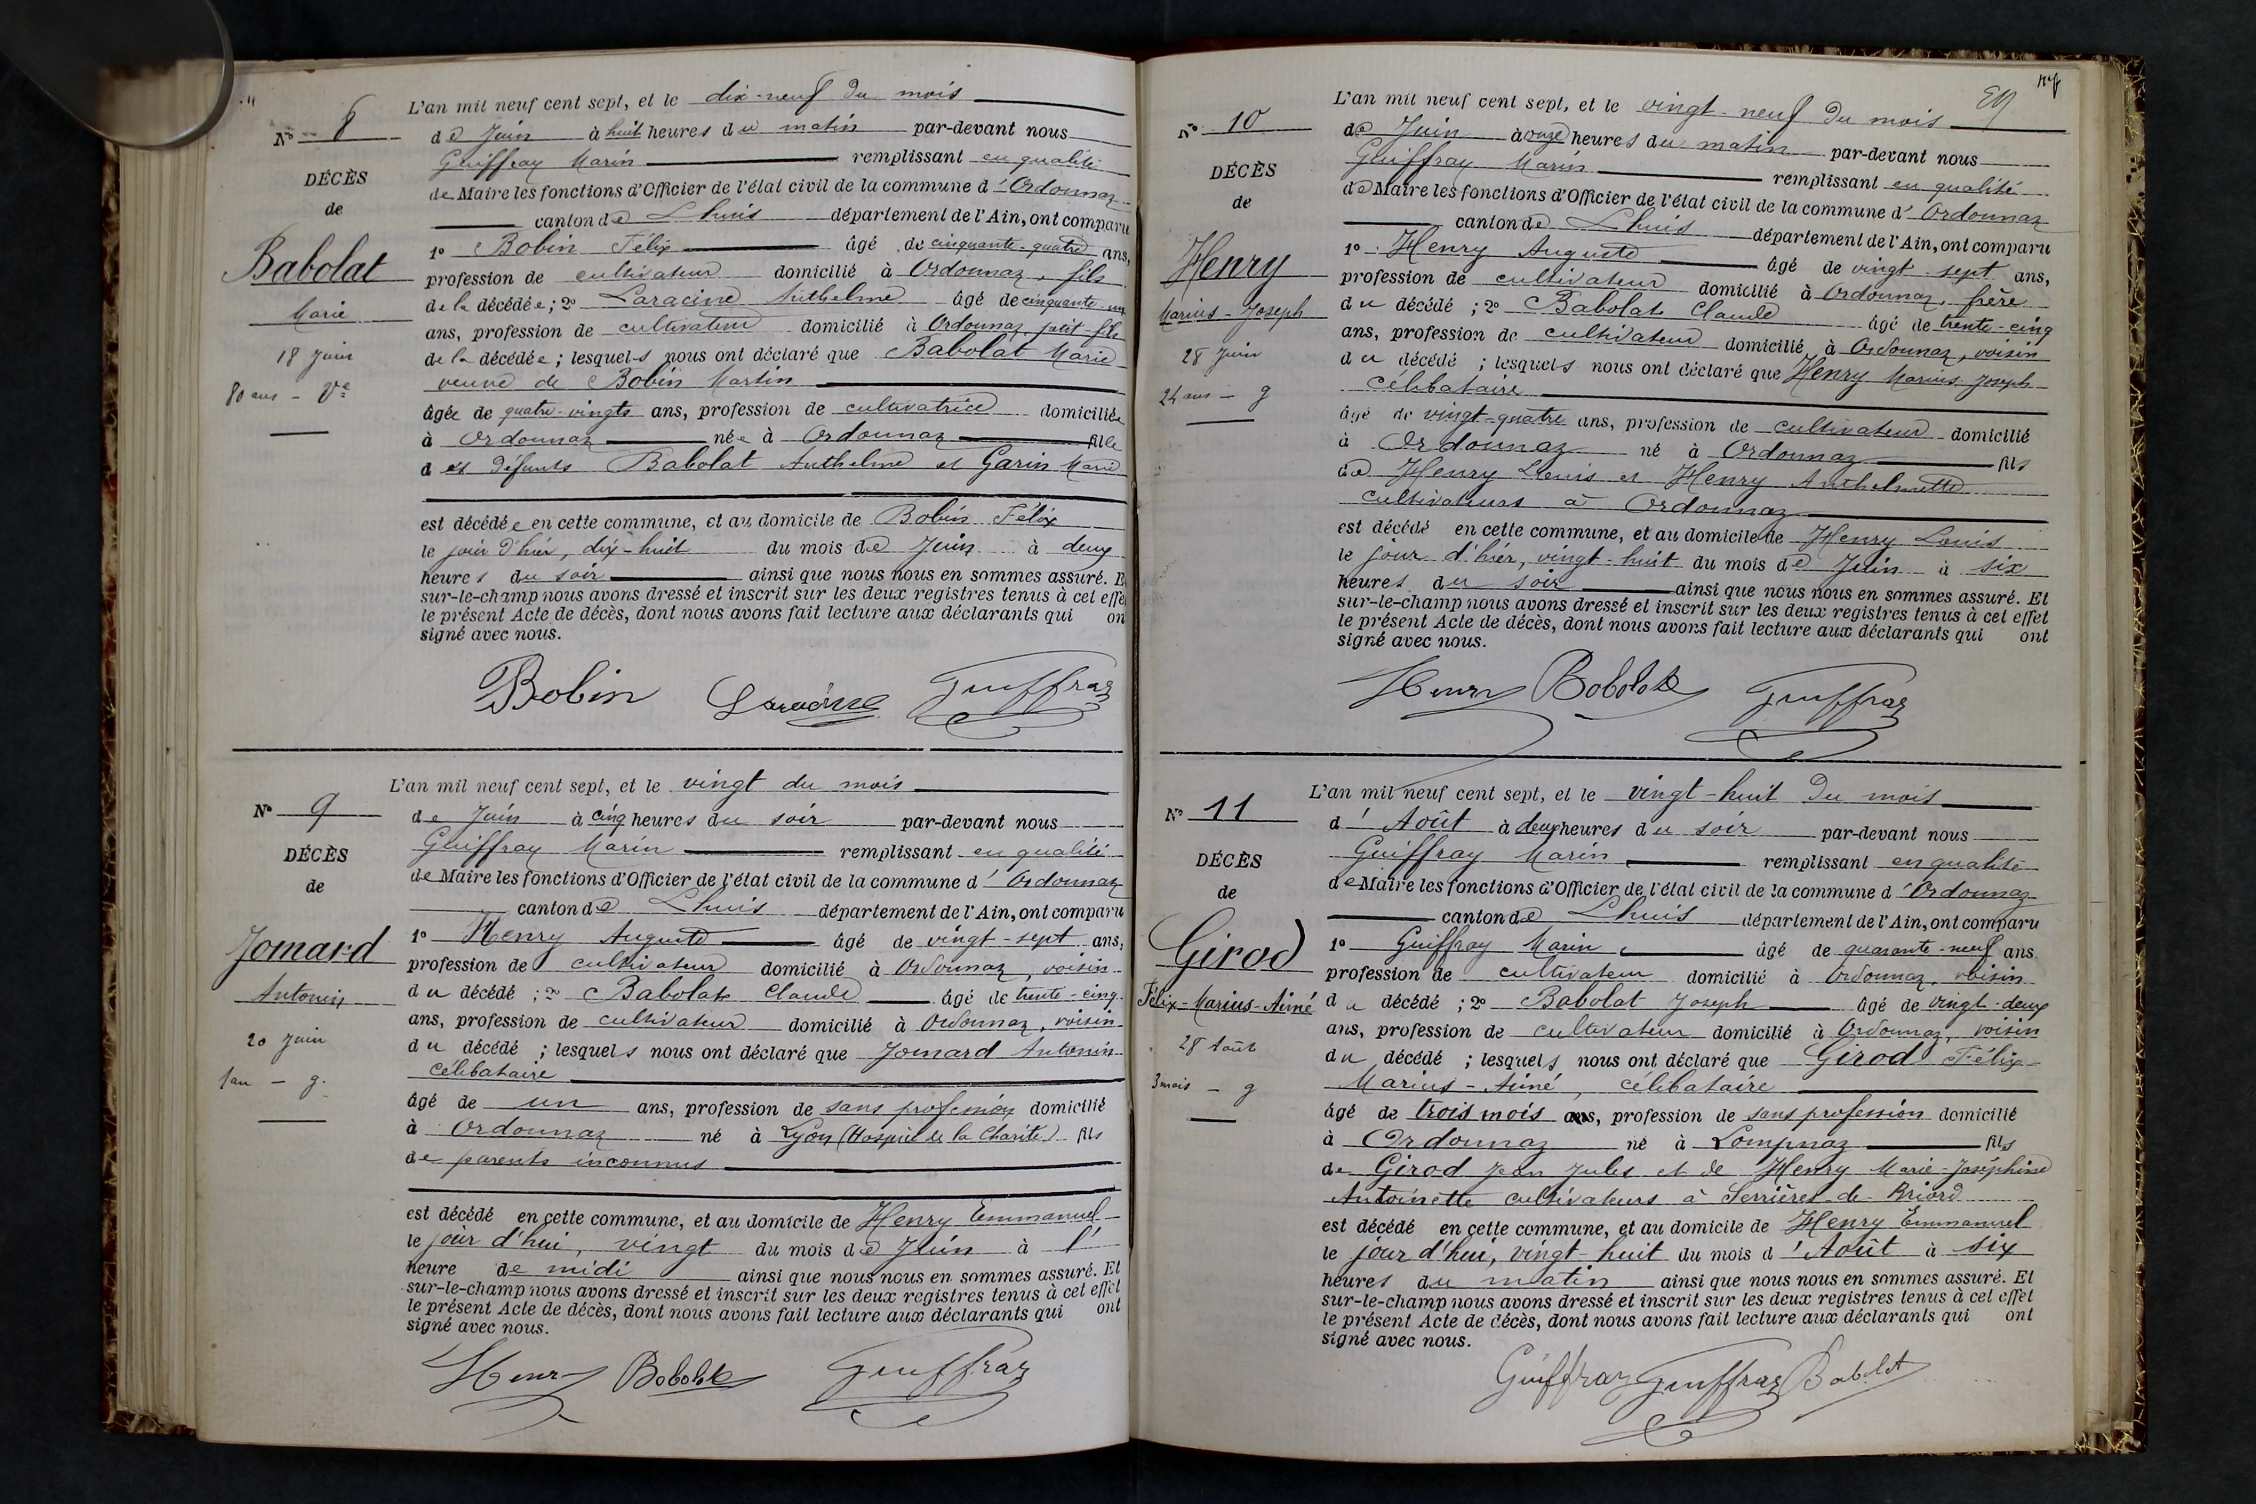 L'an mil neuf cent sept, et le dix-neuf du mois
N° 8
de Juin à huit heures du matin par-devant nous
Guiffray Marin remplissant en qualité
DÉCÈS
de Maire les fonctions d'Officier de l'état civil de la commune d'Ordonnaz
de
canton de Lhuis département de l'Ain, ont comparu
1° Bobin Félix âgé de cinquante-quatre ans,
Babolat
profession de cultivateur domicilié à Ordonnaz, fils
de la décédée; 2° Laracine Anthelme âgé de cinquante-un
Marie
ans, profession de cultivateur domicilié à Ordonnaz, petit-fils
18 Juin
de la décédée; lesquels nous ont déclaré que Babolat Marie
veuve de Bobin Martin
80 ans - Vve
âgée de quatre-vingts ans, profession de cultivatrice domiciliée
à Ordonnaz née à Ordonnaz fille
des défunts Babolat Anthelme et Garin Marie
est décédée en cette commune, et au domicile de Bobin Félix
le jour d'hier, dix-huit du mois de Juin à deux
heures du soir ainsi que nous nous en sommes assuré. E
sur-le-champ nous avons dressé et inscrit sur les deux registres tenus à cet effe
le présent Acte de décès, dont nous avons fait lecture aux déclarants qui on
signé avec nous.
Bobin Laracine Guiffray
L'an mil neuf cent sept, et le vingt du mois
N° 9
de Juin à cinq heures du soir par-devant nous
Guiffray Marin remplissant en qualité
DÉCÈS
de Maire les fonctions d'Officier de l'état civil de la commune d'Ordonnaz
de
canton de Lhuis département de l'Ain, ont comparu
1° Henry Auguste âgé de vingt-sept ans,
Jomard
profession de cultivateur domicilié à Ordonnaz, voisin
Antonin
du décédé; 2° Babolat Claude âgé de trente-cinq
ans, profession de cultivateur domicilié à Ordonnaz, voisin
20 Juin
du décédé; lesquels nous ont déclaré que Jomard Antonin
célibataire
1 an - g.
âgé de un ans, profession de sans profession domicilié
à Ordonnaz né à Lyon (Hospice de la Charité) fils
de parents inconnus
est décédé en cette commune, et au domicile de Henry Emmanuel
le jour d'hui, vingt du mois de Juin à l'
heure de midi ainsi que nous nous en sommes assuré. Et
sur-le-champ nous avons dressé et inscrit sur les deux registres tenus à cet effet
le présent Acte de décès, dont nous avons fait lecture aux déclarants qui ont
signé avec nous.
Henry Babolat Guiffray
L'an mil neuf cent sept, et le vingt-neuf du mois
N° 10
de Juin à onze heures du matin par-devant nous
Guiffray Marin remplissant en qualité
DÉCÈS
de Maire les fonctions d'Officier de l'état civil de la commune d'Ordonnaz
de
canton de Lhuis département de l'Ain, ont comparu
1° Henry Auguste âgé de vingt-sept ans,
Henry
profession de cultivateur domicilié à Ordonnaz, frère
Marius-Joseph
du décédé; 2° Babolat Claude âgé de trente-cinq
ans, profession de cultivateur domicilié à Ordonnaz, voisin
28 Juin
du décédé; lesquels nous ont déclaré que Henry Marius Joseph
célibataire
24 ans - g
âgé de vingt-quatre ans, profession de cultivateur domicilié
à Ordonnaz né à Ordonnaz fils
de Henry Louis et Henry Anthelmette
cultivateurs à Ordonnaz
est décédé en cette commune, et au domicile de Henry Louis
le jour d'hier, vingt-huit du mois de Juin à six
heures du soir ainsi que nous nous en sommes assuré. Et
sur-le-champ nous avons dressé et inscrit sur les deux registres tenus à cet effet
le présent Acte de décès, dont nous avons fait lecture aux déclarants qui ont
signé avec nous.
Henry Babolat Guiffray
L'an mil neuf cent sept, et le vingt-huit du mois
N° 11
d'Août à deux heures du soir par-devant nous
Guiffray Marin remplissant en qualité
DÉCÈS
de Maire les fonctions d'Officier de l'état civil de la commune d'Ordonnaz
de
canton de Lhuis département de l'Ain, ont comparu
1° Guiffray Marin âgé de quarante-neuf ans
Girod
profession de cultivateur domicilié à Ordonnaz, voisin
Félix-Marius-Aimé
du décédé; 2° Babolat Joseph âgé de vingt-deux
ans, profession de cultivateur domicilié à Ordonnaz, voisin
28 Août
du décédé; lesquels nous ont déclaré que Girod Félix-
Marius-Aimé, célibataire
3 mois - g
âgé de trois mois ans, profession de sans profession domicilié
à Ordonnaz né à Lompnaz fils
de Girod Jean Jules et de Henry Marie-Joséphine
Antoinette cultivateurs à Serrières-de-Briord
est décédé en cette commune, et au domicile de Henry Emmanuel
le jour d'hui, vingt-huit du mois d'Août à six
heures du matin ainsi que nous nous en sommes assuré. Et
sur-le-champ nous avons dressé et inscrit sur les deux registres tenus à cet effet
le présent Acte de décès, dont nous avons fait lecture aux déclarants qui ont
signé avec nous.
Guiffray Guiffray Babolat